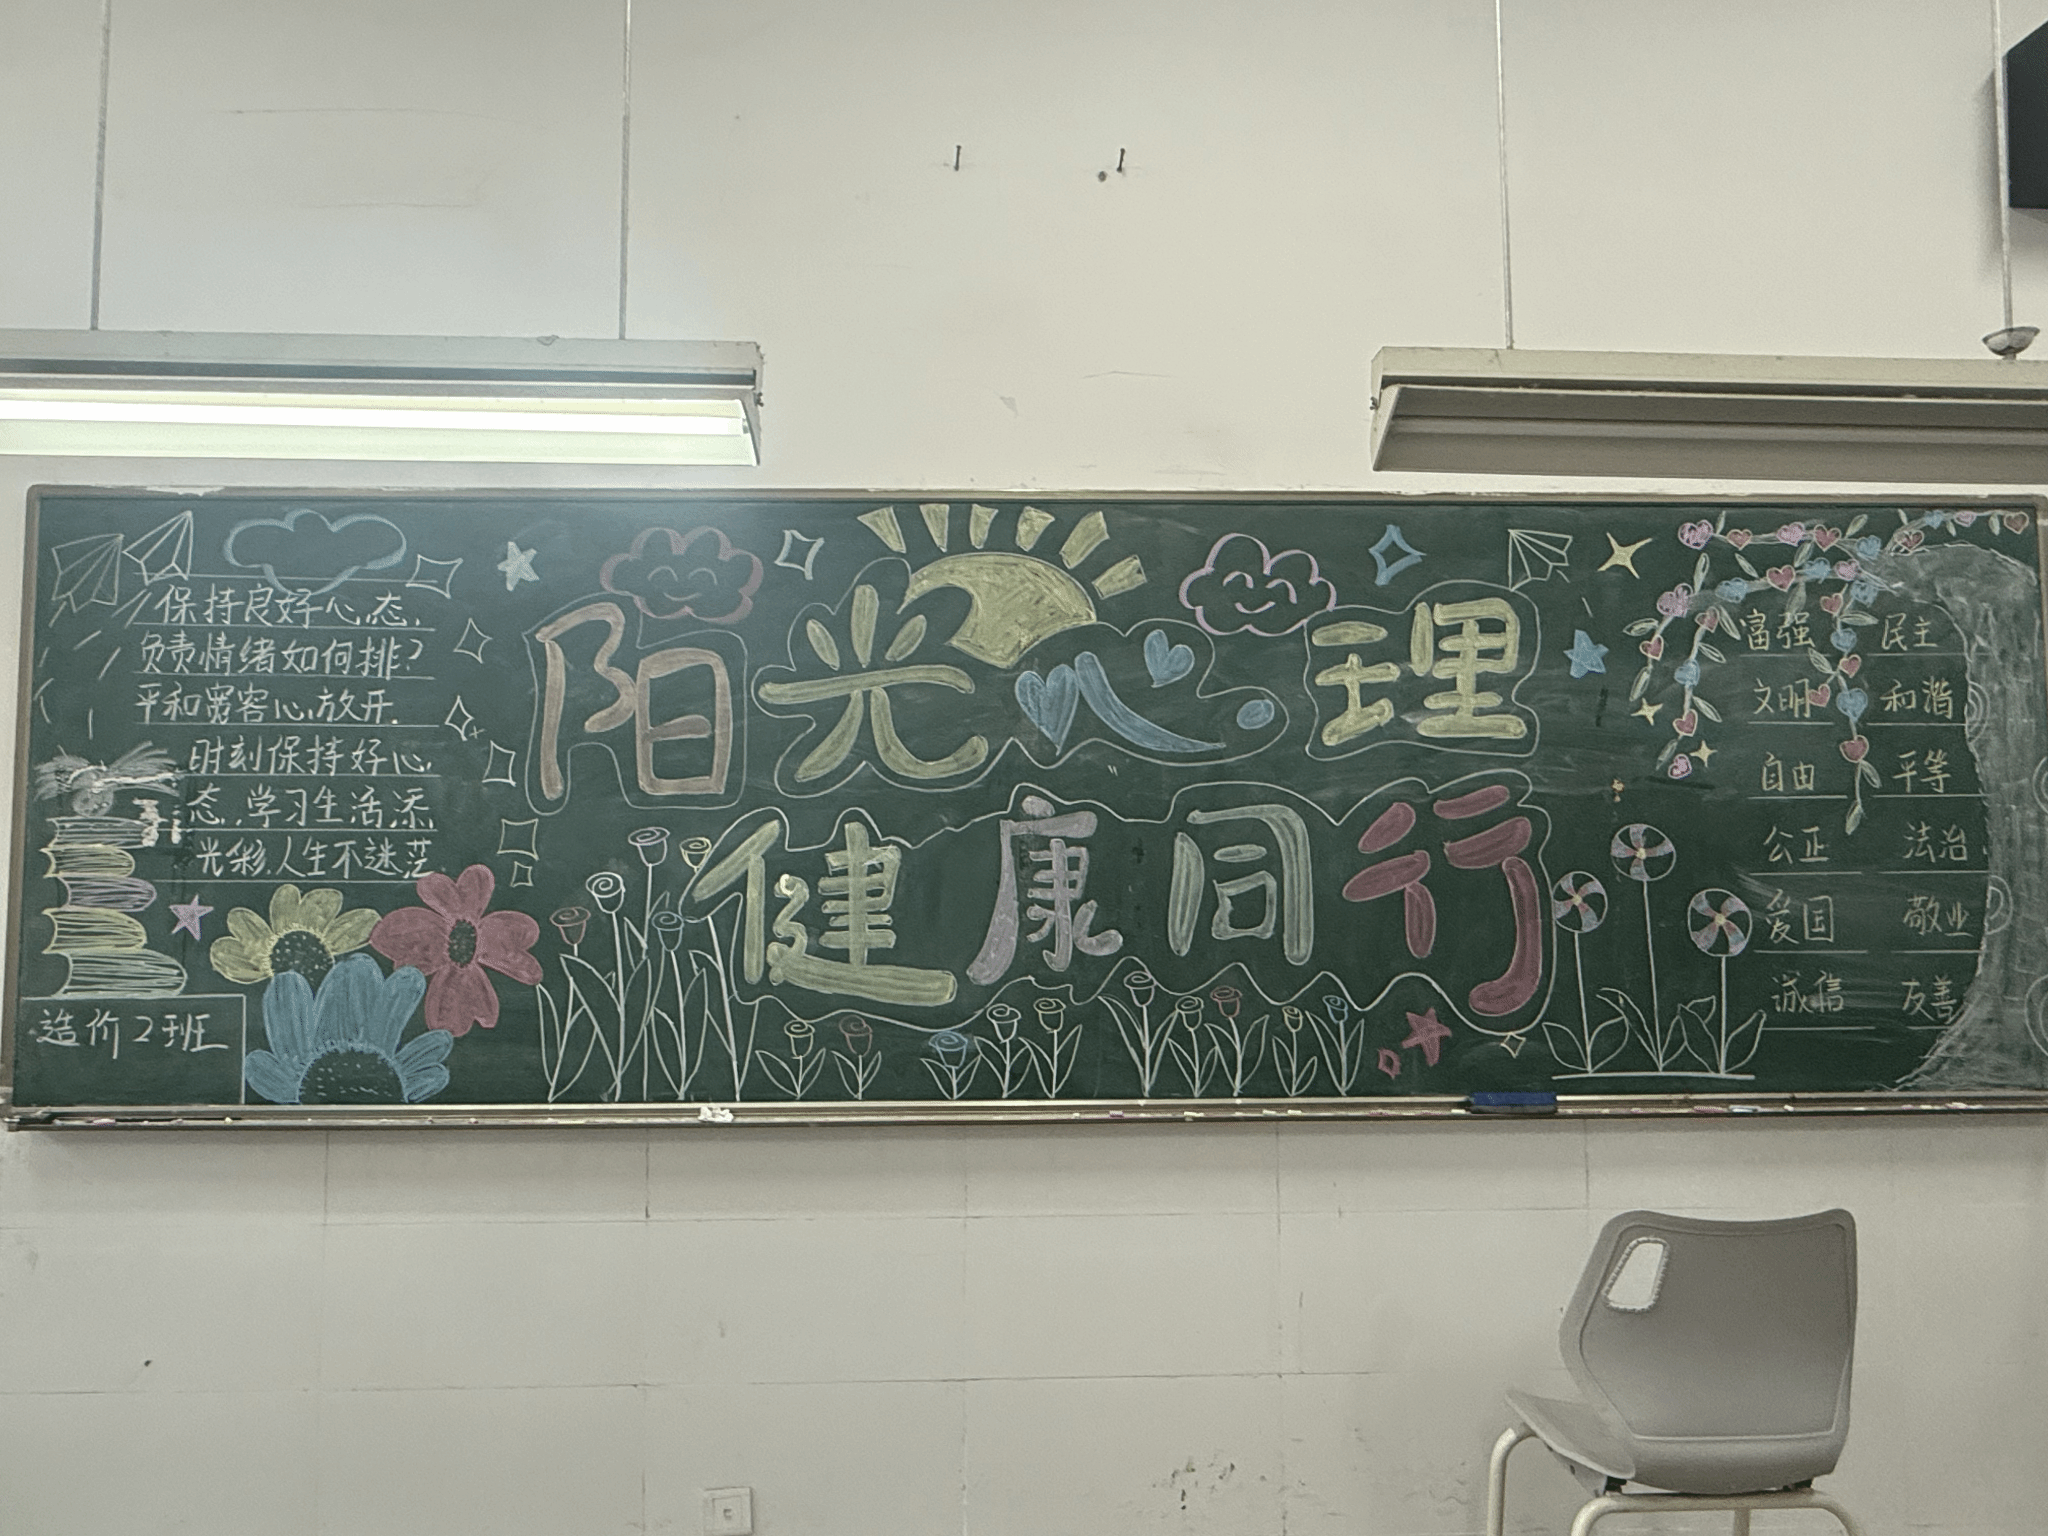 保持良好心态,
负责情绪如何排?
平和宽容心放开.
时刻保持好心,
态,学习生活添,
光彩,人生不迷茫.
造价2班
阳光心理
健康同行
富强 民主
文明 和谐
自由 平等
公正 法治
爱国 敬业
诚信 友善